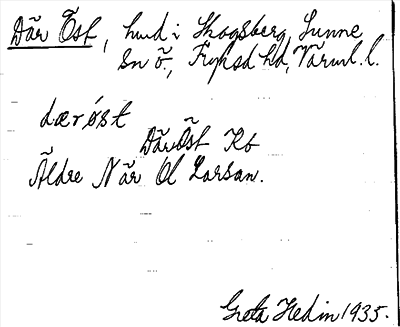 Där Öst, hmd i Skogsberg, Sunne
sn ö., Fryksd hd, Värml. l.
dærǿst
Där Öst Kb
Äldre När Ol Larsan.
Greta Hedin 1935.